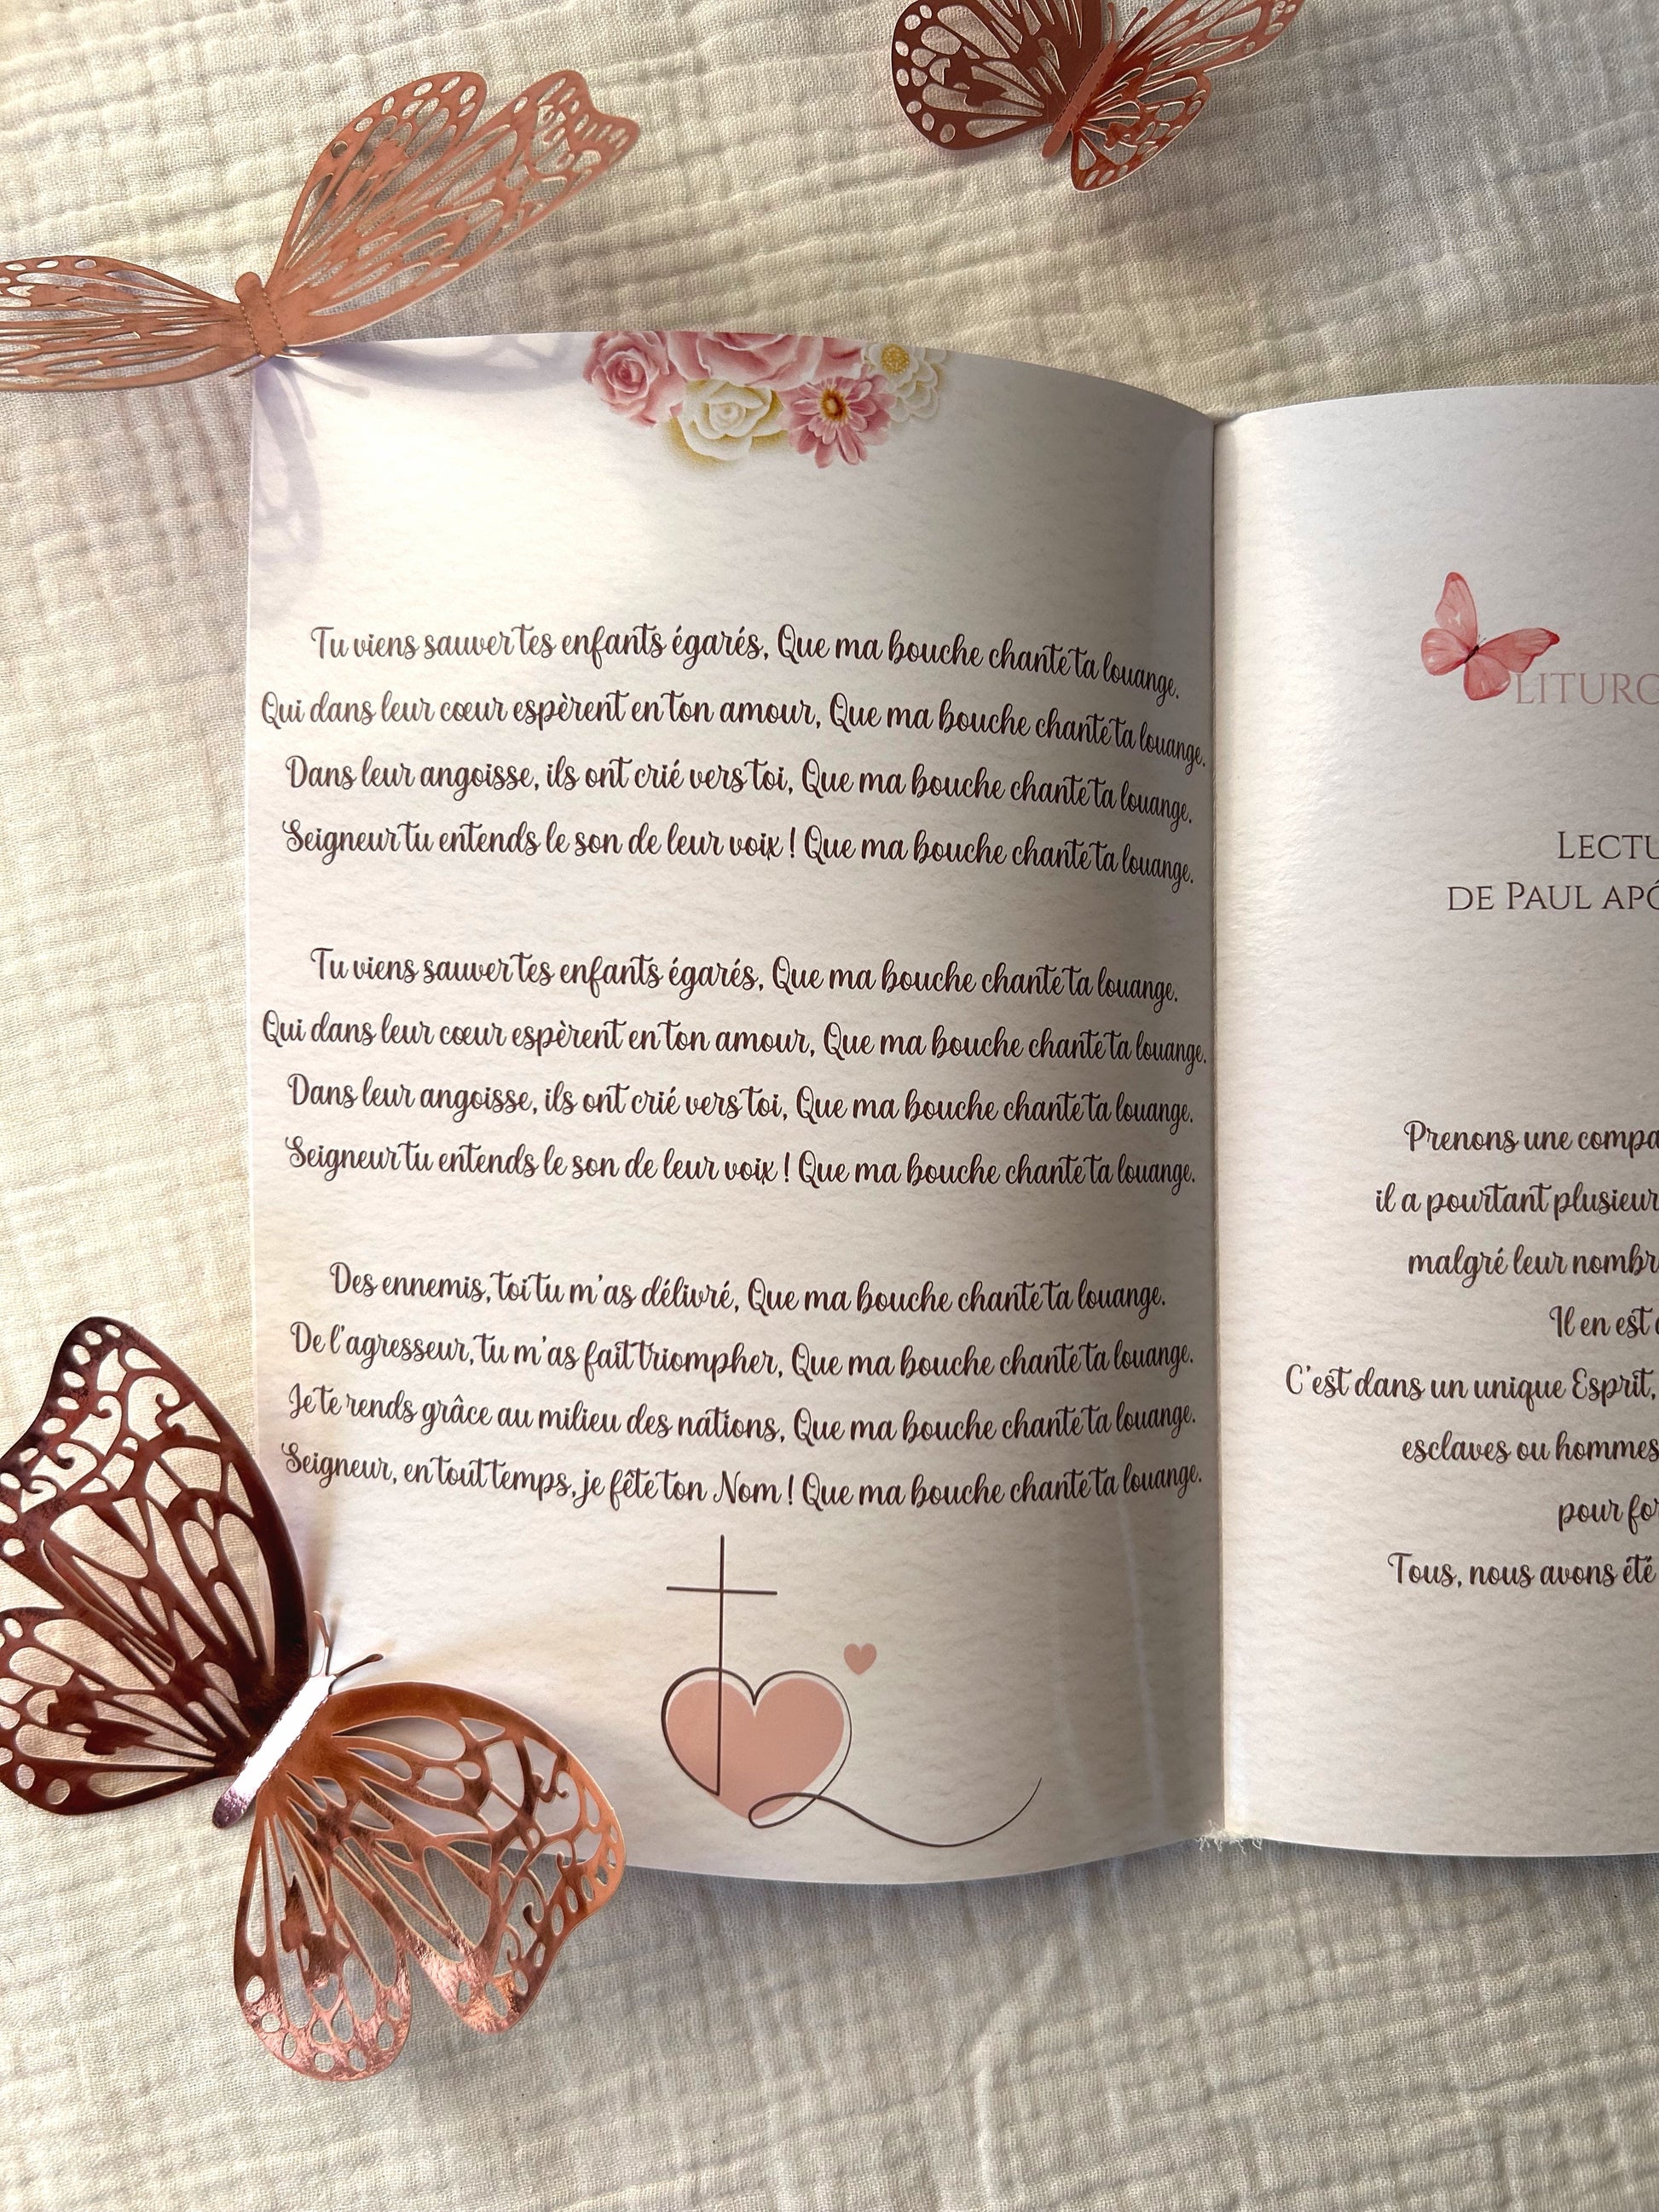 Tu viens sauver tes enfants égarés, Que ma bouche chante ta louange.
Qui dans leur cœur espèrent en ton amour, Que ma bouche chante ta louange.
Dans leur angoisse, ils ont crié vers toi, Que ma bouche chante ta louange.
Seigneur tu entends le son de leur voix ! Que ma bouche chante ta louange.
Tu viens sauver tes enfants égarés, Que ma bouche chante ta louange.
Qui dans leur cœur espèrent en ton amour, Que ma bouche chante ta louange.
Dans leur angoisse, ils ont crié vers toi, Que ma bouche chante ta louange.
Seigneur tu entends le son de leur voix ! Que ma bouche chante ta louange.
Des ennemis, toi tu m'as délivré, Que ma bouche chante ta louange.
De l'agresseur, tu m'as fait triompher, Que ma bouche chante ta louange.
Je te rends grâce au milieu des nations, Que ma bouche chante ta louange.
Seigneur, en tout temps, je fête ton Nom ! Que ma bouche chante ta louange.
LITURG
LECTU
DE PAUL APÔ
Prenons une compa
il a pourtant plusieur
malgré leur nombr
Il en est
C'est dans un unique Esprit,
esclaves ou hommes
pour for
Tous, nous avons été